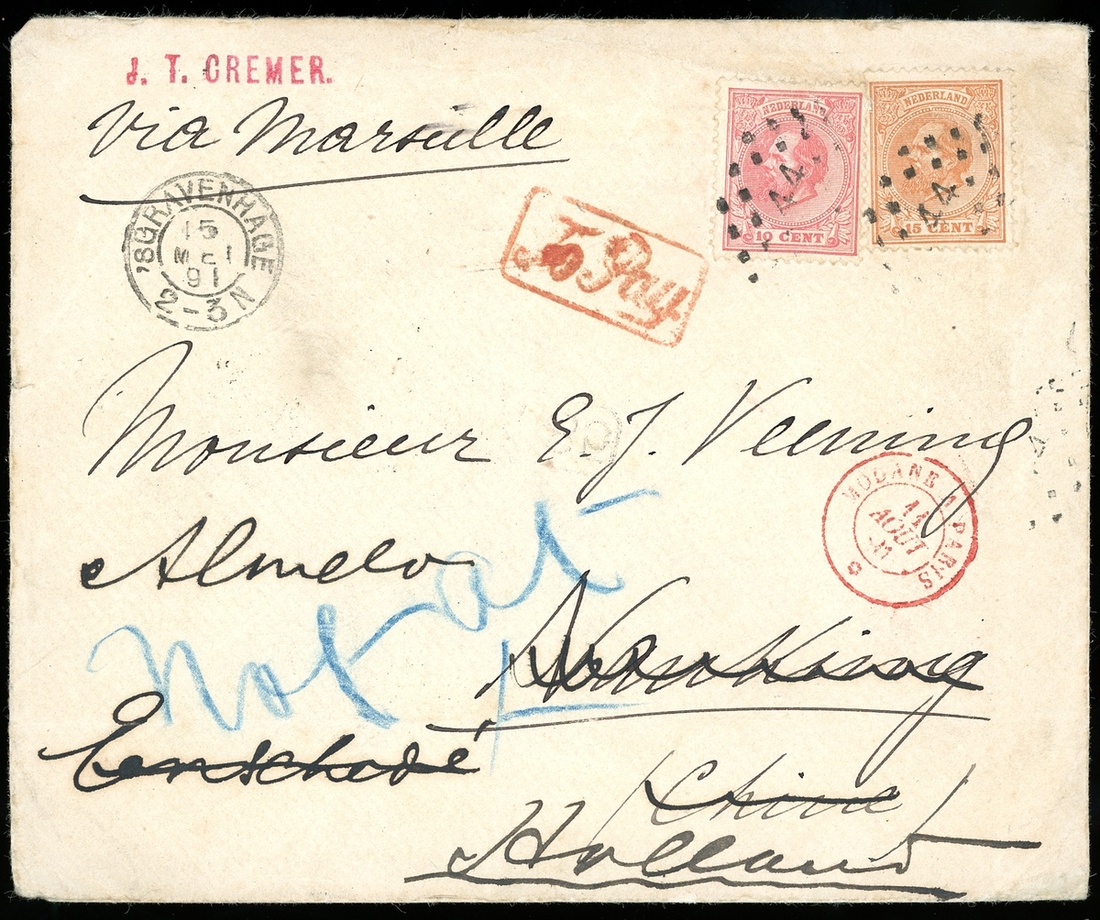 J. T. CREMER.
via Marseille
NEDERLAND
10 CENT
44
NEDERLAND
15 CENT
44
'SGRAVENHAGE
15
MEI
91
2-3N
To Pay
Monsieur E. J. Veening
MODANE A PARIS
11
AOUT
91
Almelo
Not at
Nanking
Enschedé
(Chine)
Holland